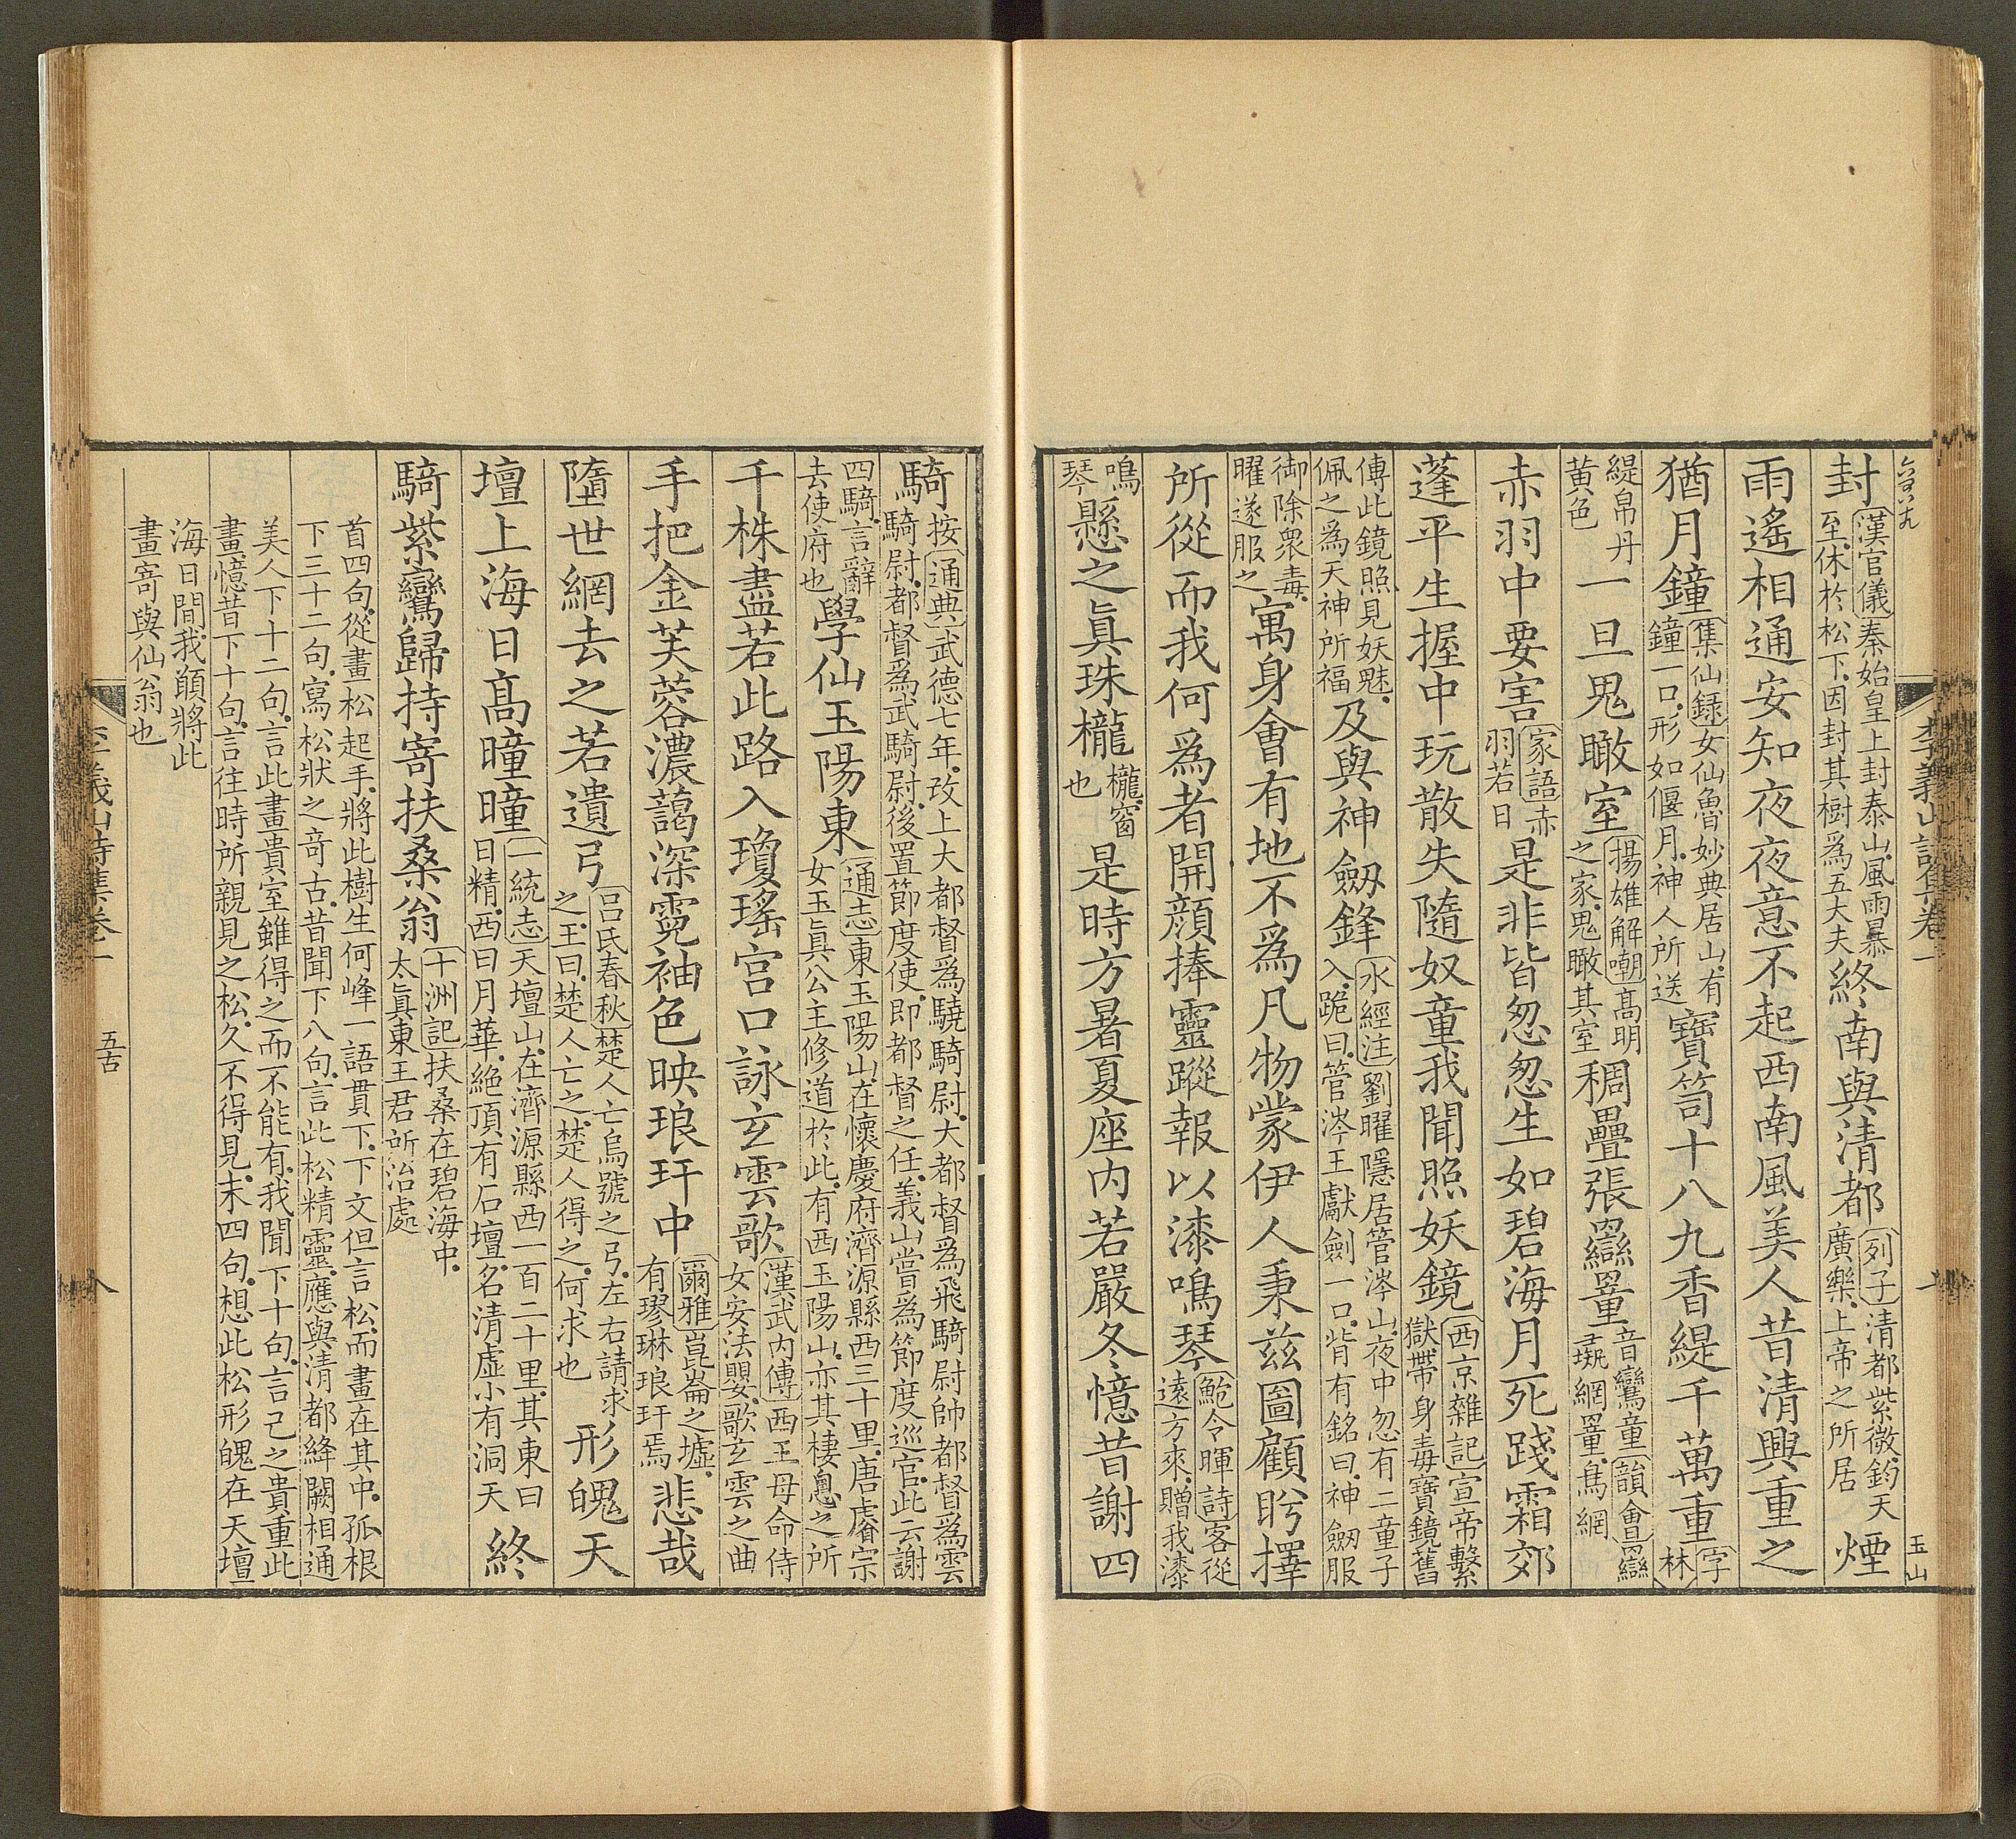 封〔漢官儀〕秦始皇上封泰山,風雨暴至,休於松下,因封其樹爲五大夫終南與清都〔列子〕清都紫微,鈞天廣樂,上帝之所居煙
雨遙相通安知夜夜意不起西南風美人昔清興重之
猶月鐘〔集仙錄〕女仙魯妙典居山,有鐘一口,形如偃月,神人所送寶笥十八九香緹千萬重〔字林〕
緹帛丹黃色一旦鬼瞰室〔揚雄解嘲〕高明之家,鬼瞰其室稠疊張羉罿音鸞童〔韻會〕羉彘網罿,鳥網
赤羽中要害〔家語〕赤羽若日是非皆忽忽生如碧海月死踐霜郊
蓬平生握中玩散失隨奴童我聞照妖鏡〔西京雜記〕宣帝繫獄帶身毒寶鏡舊
傳此鏡照見妖魅,佩之爲天神所福及與神劔鋒〔水經注〕劉曜隱居管涔山,夜中忽有二童子入跪曰,管涔王獻劍一口,背有銘曰,神劔服
御除衆毒,曜遂服之寓身會有地不爲凡物蒙伊人秉茲圖顧盻擇
所從而我何爲者開顏捧靈蹤報以漆鳴琴〔鮑令暉詩〕客從遠方來,贈我漆
鳴琴懸之眞珠櫳櫳,窗也是時方暑夏座內若嚴冬憶昔謝四
騎按〔通典〕武德七年,改上大都督爲驍騎尉,大都督爲飛騎尉帥都督爲雲騎尉,都督爲武騎尉,後置節度使,即都督之任,義山嘗爲節度巡官,此云謝
四騎,言辭去使府也學仙玉陽東〔通志〕東玉陽山,在懷慶府濟源縣西三十里,唐睿宗女玉眞公主修道於此,有西玉陽山,亦其棲息之所
千株盡若此路入瓊瑤宮口詠玄雲歌〔漢武內傳〕西王母命侍女安法嬰,歌玄雲之曲
手把金芙蓉濃藹深霓袖色映琅玕中〔爾雅〕崑崙之墟,有璆琳琅玕焉悲哉
墮世網去之若遺弓〔呂氏春秋〕楚人亡烏號之弓,左右請求之,王曰,楚人亡之,楚人得之,何求也形魄天
壇上海日高曈曈〔一統志〕天壇山,在濟源縣西一百二十里,其東曰日精,西曰月華,絕頂有石壇,名清虛小有洞天終
騎紫鸞歸持寄扶桑翁〔十洲記〕扶桑在碧海中,太眞東王君所治處
首四句,從畫松起手,將此樹生何峰一語貫下,下文但言松,而畫在其中,孤根
下三十二句,寫松狀之奇古,昔聞下八句,言此松精靈,應與清都絳闕相通
美人下十二句,言此畫貴室雖得之而不能有,我聞下十句,言己之貴重此
畫,憶昔下十句,言往時所親見之松,久不得見,末四句,想此松形魄在天壇
海日間,我願將此
畫寄與仙翁也
李義山詩集卷一
五古
八
玉山